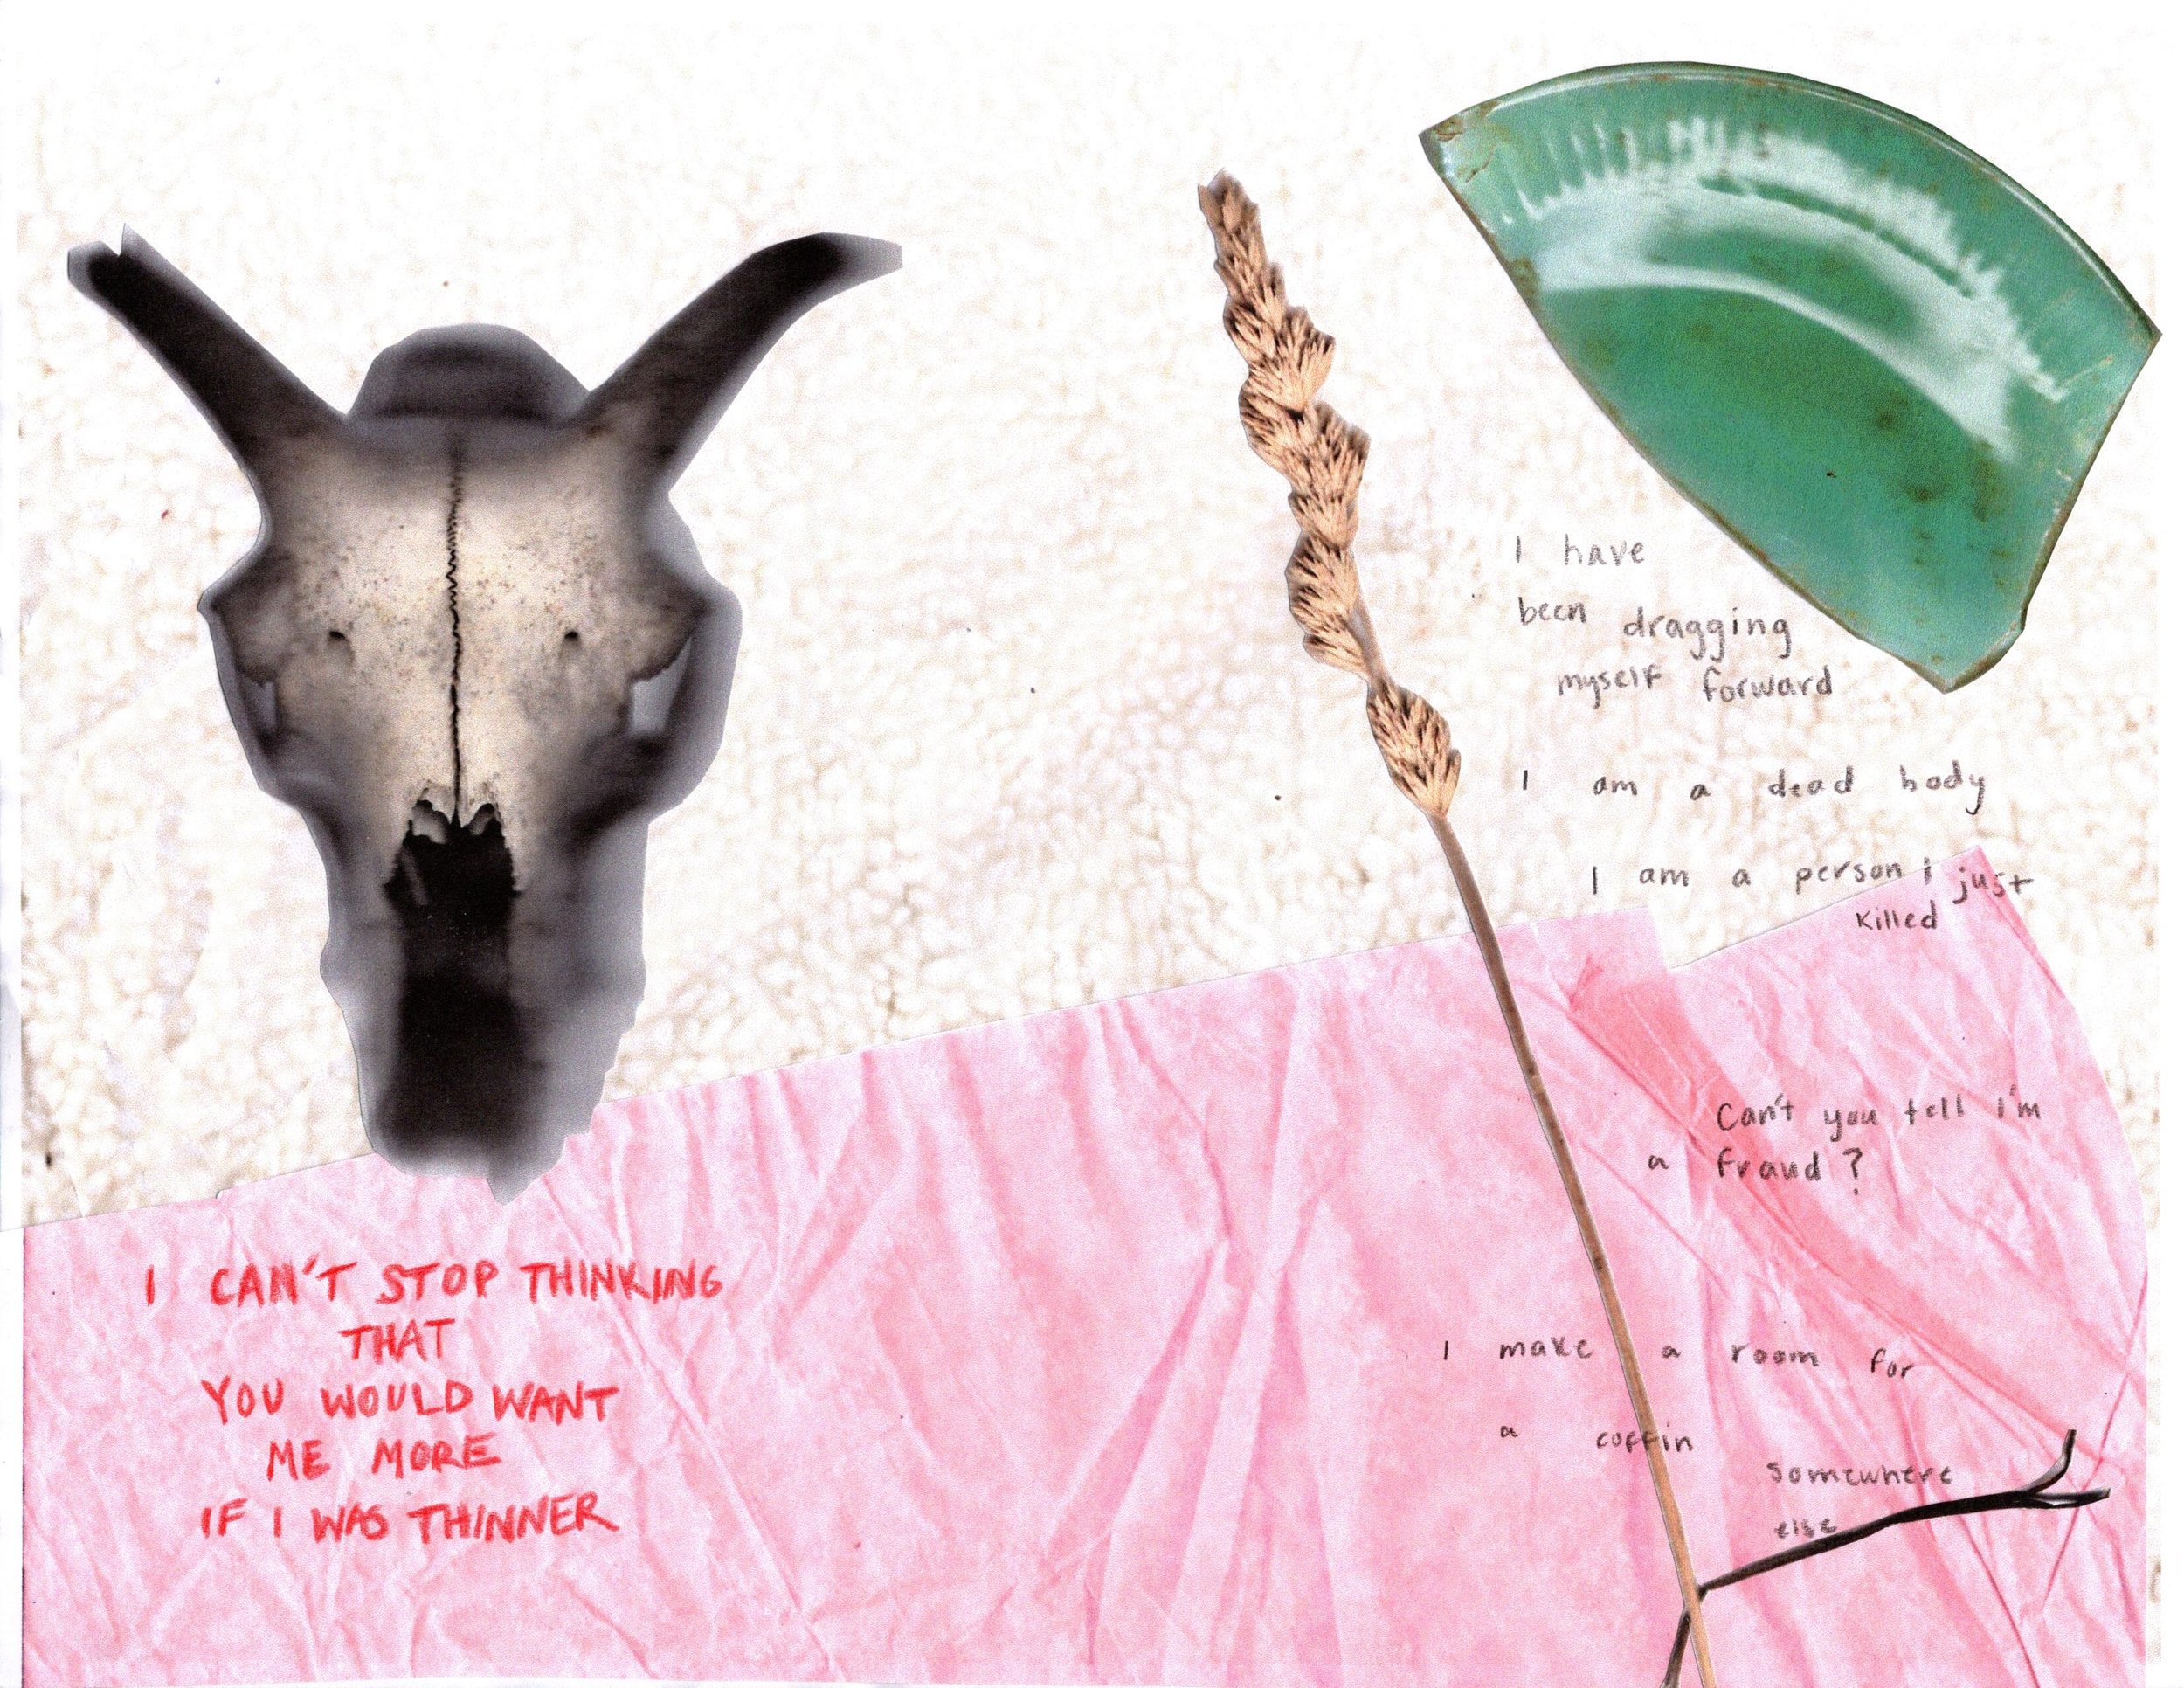 I CAN'T STOP THINKING
THAT
YOU WOULD WANT
ME MORE
IF I WAS THINNER
I have
been dragging
myself forward
I am a dead body
I am a person i just
killed
Can't you tell i'm
a fraud?
I make a room for
a coffin
somewhere
else